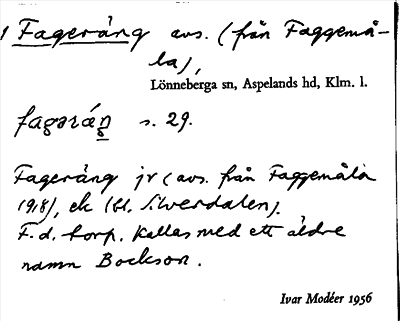 1 Fageräng avs. (från Faggemå-
la),
Lönneberga sn, Aspelands hd, Klm. l.
fagəráŋ s. 29.
Fageräng jr (avs. från Faggemåla
1918), ek (bl. Silverdalen).
F.d. torp. Kallas med ett äldre
namn Bockson.
Ivar Modéer 1956